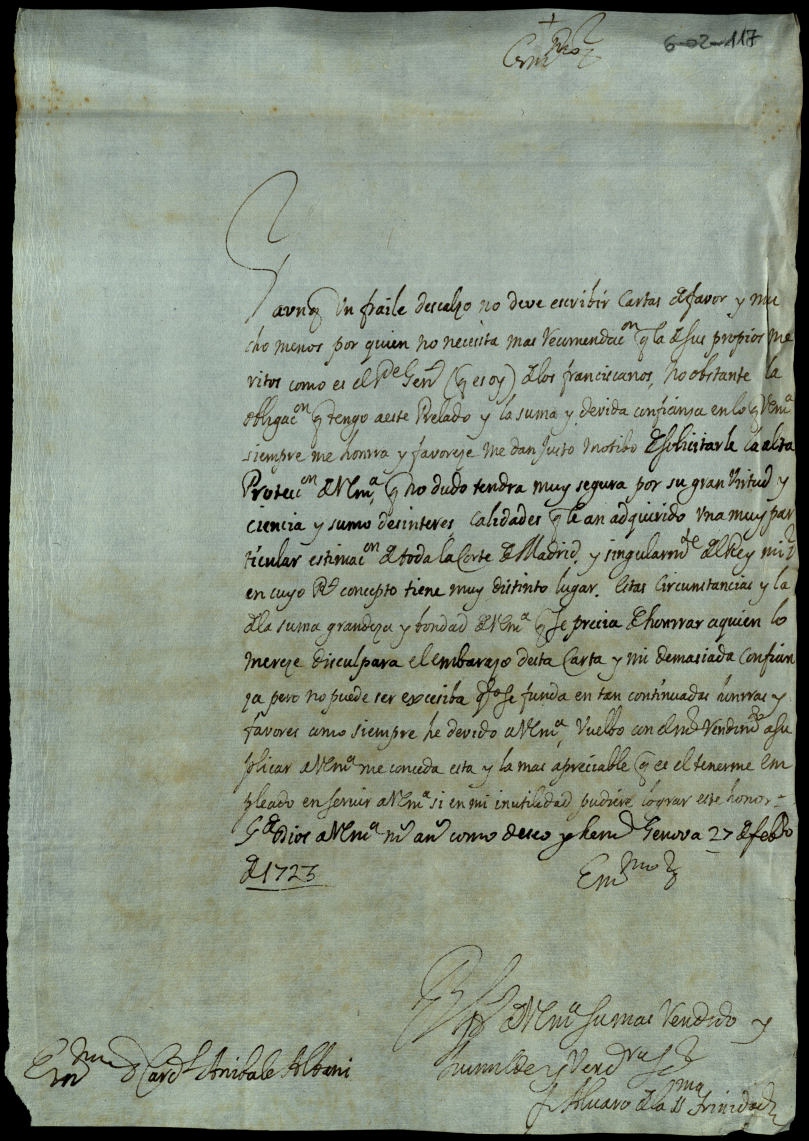 6-02-117
+
Em^mo S^r
Y aunq Un fraile descalzo no deve escribir Cartas de favor y mu
cho menos por quien no necesita mas recomendac^on q la de sus propios me
ritos como es el P^e Gen^l (q es oy) de los franciscanos, no obstante la
obligac^on q tengo a este Prelado y la suma y devida confianza en lo q VEm^a
siempre me honrra y favoreze me dan justo motibo de solicitarle la alta
Protecc^on de VEm^a, q no dudo tendra muy segura por su gran Virtud y
ciencia y sumo desinteres, calidades q le an adquirido Una muy par
ticular estimac^on de toda la Corte de Madrid, y singularm^te del Rey mi S^r
en cuyo R^l concepto tiene muy distinto lugar. Estas Circunstancias y la
de la suma grandeza y bondad de VEm^a q se precia de honrrar a quien lo
mereze disculpara el embarazo desta Carta y mi demasiada confian
za pero no puede ser excesiba q^do se funda en tan continuadas honrras y
favores como siempre he devido a VEm^a. Vuelbo con el m^r Rendim^to a su
plicar a VEm^a me conceda esta y la mas apreciable q es el tenerme em
pleado en servir a VEm^a si en mi inutilidad pudiere lograr este honor.
G^de Dios a VEm^a m^s an^s como deseo Genova 27 de febro
de 1723
Em^mo S^r
BLM de VEm^a su mas Rendido y
humilde Ser^r
f. Alvaro de la SS^ma Trinidad
Em^mo S^r Card^l Anibale Albani